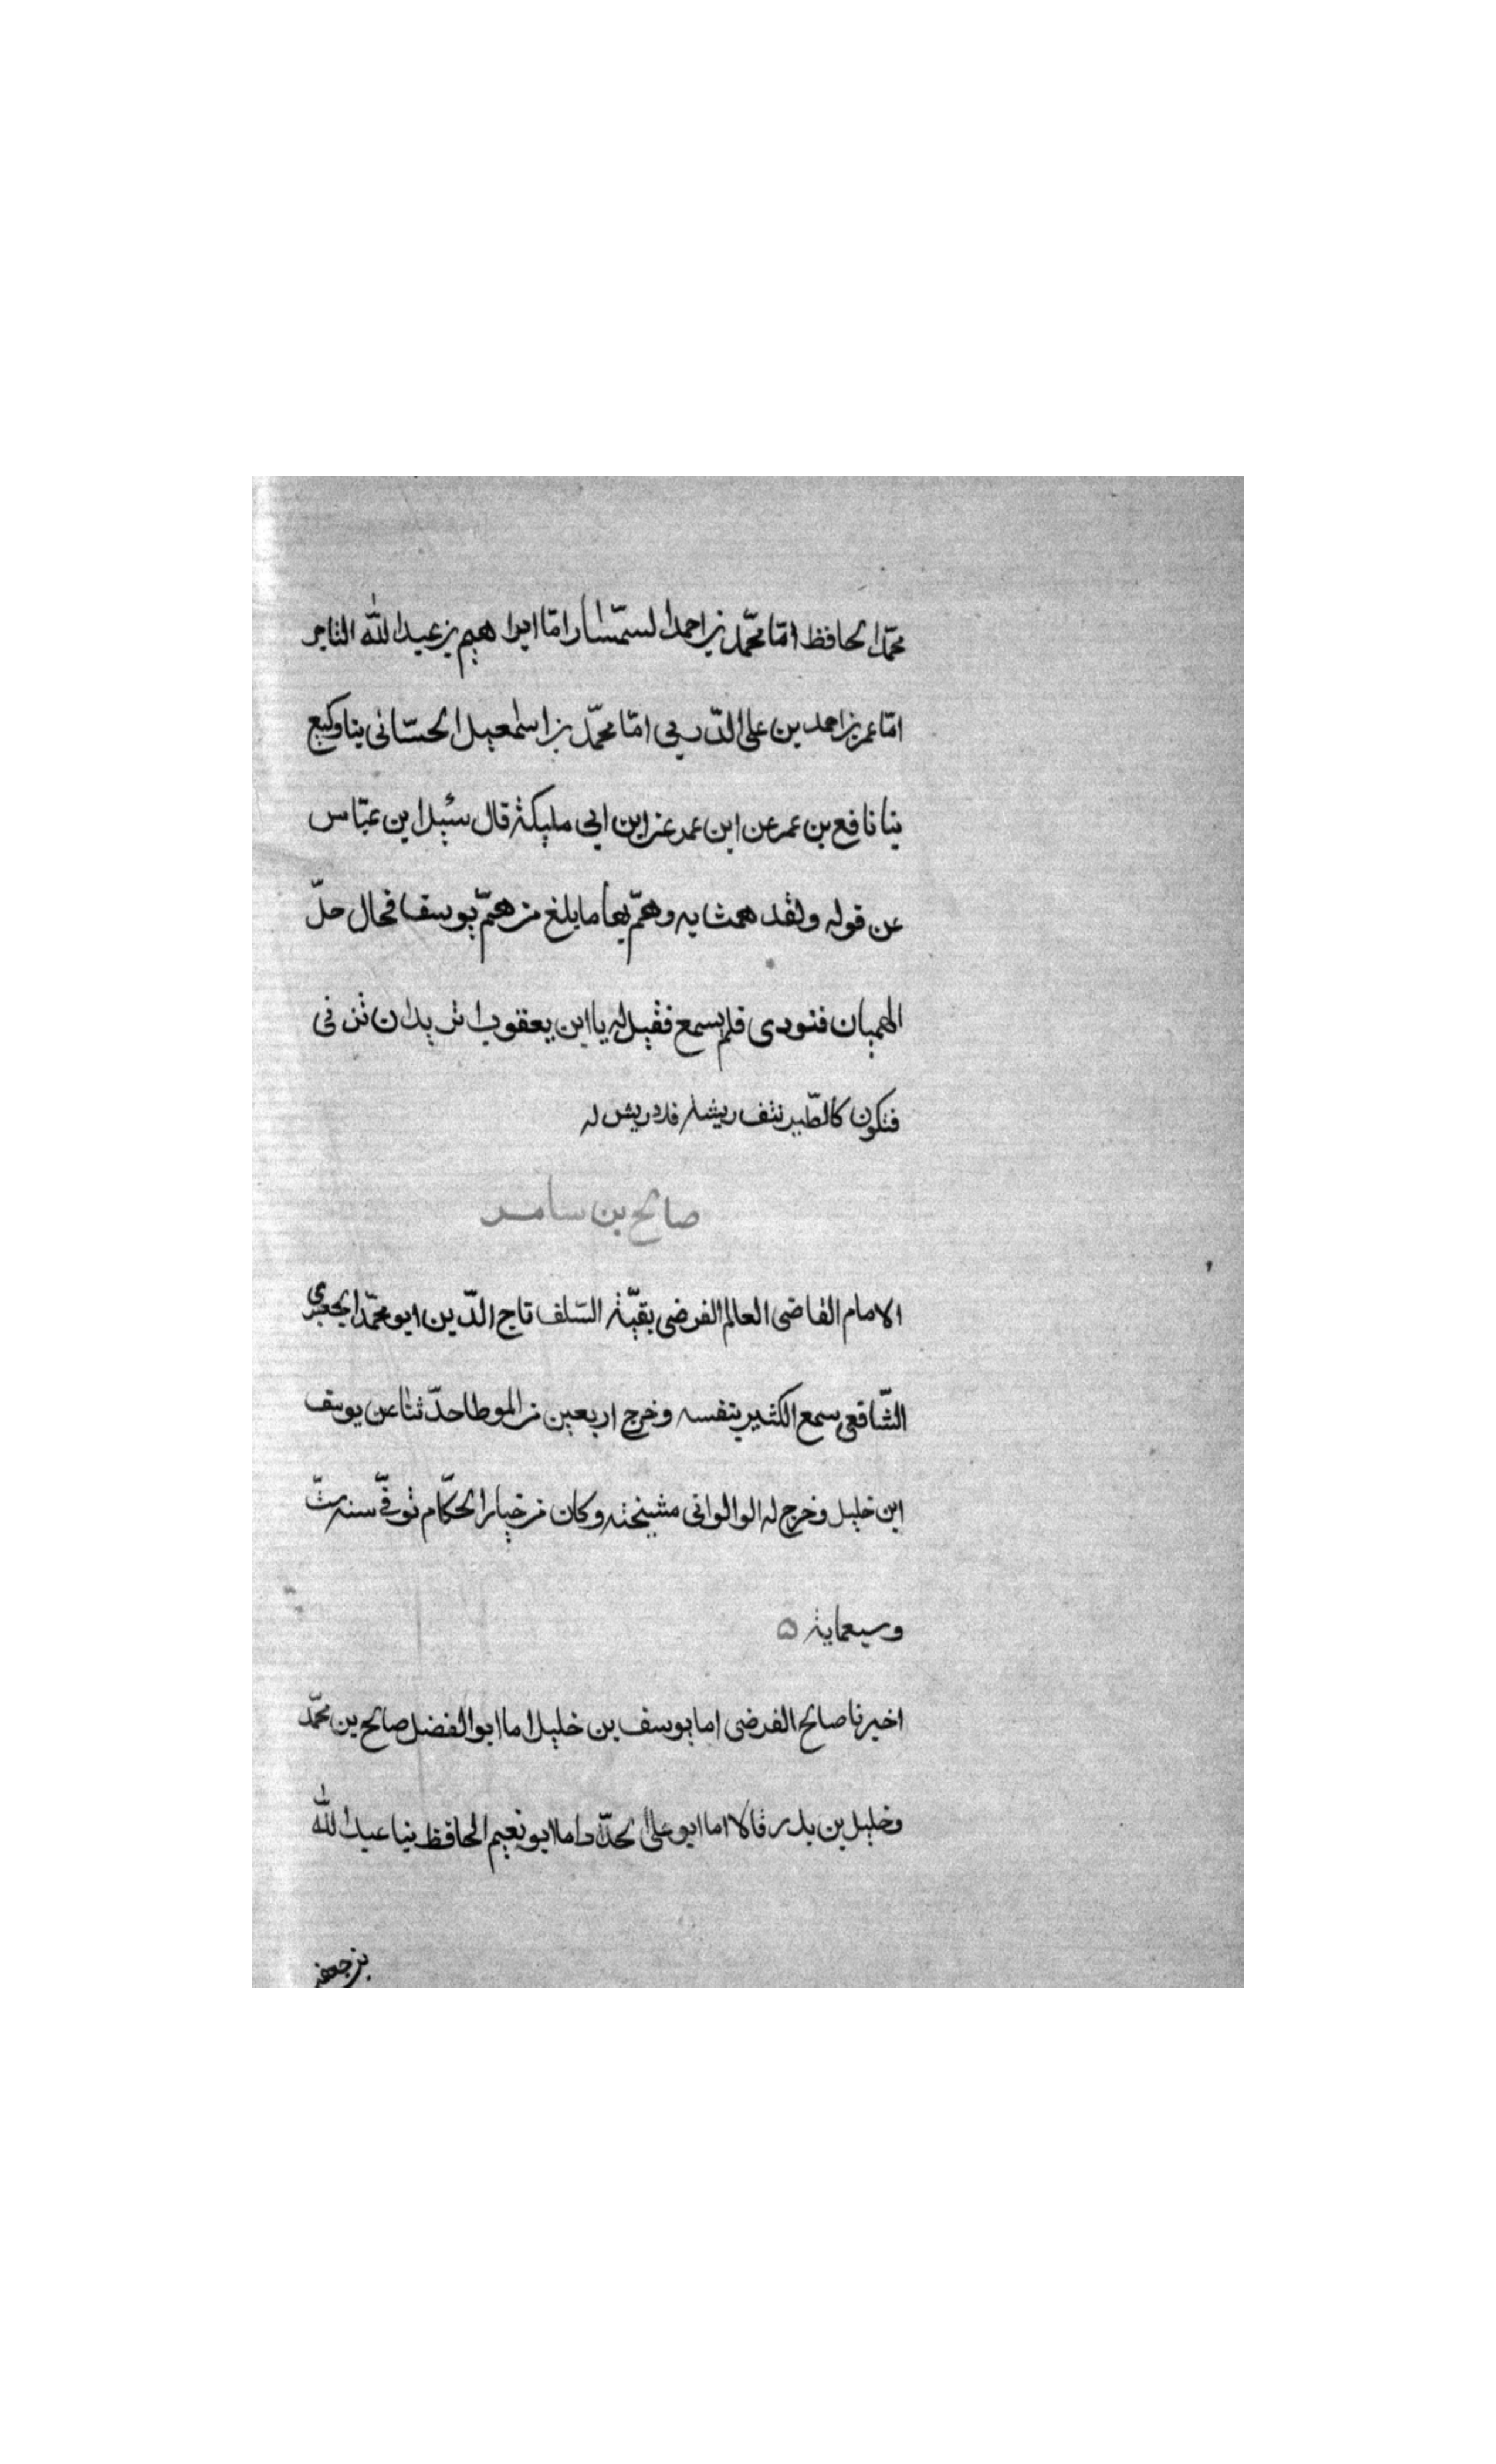 محمّد الحافظ امّا محمّد بن احمد السمّسار امّا ابراهيم بن عبد الله التاجر
امّا عمر بن احمد بن على الدّربي امّا محمّد بن اسمعيل الحسّانى ينا وكيع
ينا نافع بن عمر عن ابن عمر عن ابن ابى مليكة قال سئيل ابن عبّاس
عن قوله ولقد همت به وهمّ بها ما بلغ من همّ يوسف فحال حلّ
الهميان فنودى فلم يسمع فقيل له يا ابن يعقوب اتريد ان تزنى
فتكون كالطّير نتف ريشه فلا ريش له
صالح بن سامر
الامام القاضى العالم الفرضى بقيّة السّلف تاج الدّين ابو محمّد الجعبرى
الشّافعى سمع الكثير بنفسه وخرج اربعين من الموطا حدّثنا عن يوسف
ابن خليل وخرج له الوالوانى مشيخته وكان من خيار الحكّام توفّى سنة ستّ
وسبعماية ه
اخبرنا صالح الفرضى اما يوسف بن خليل اما ابو الفضل صالح بن محمّد
وخليل بن بدر قالا اما ابو على الحدّاد اما ابو نعيم الحافظ ينا عبد الله
بن جعفر